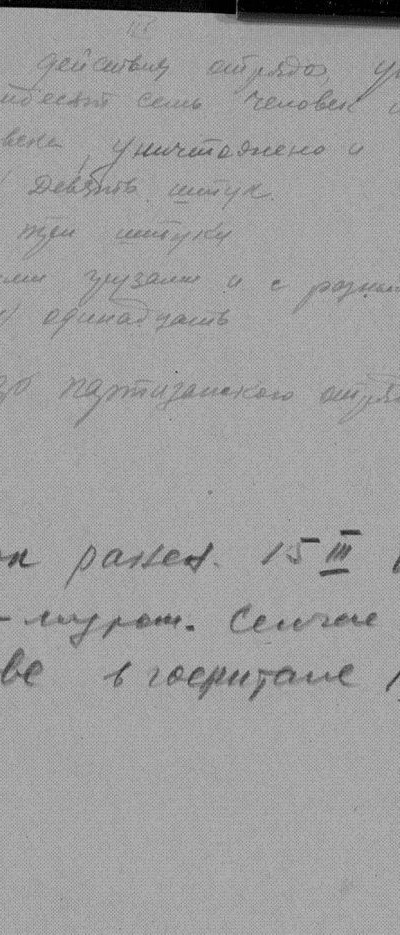 действия отряда, ун
десят семь человек
века, уничтожено и
девять штук.
три штуки
ыми грузами и с разны
одинадцать
партизанского отря
ранен. 15 III
Сейчас
ве в госпитале